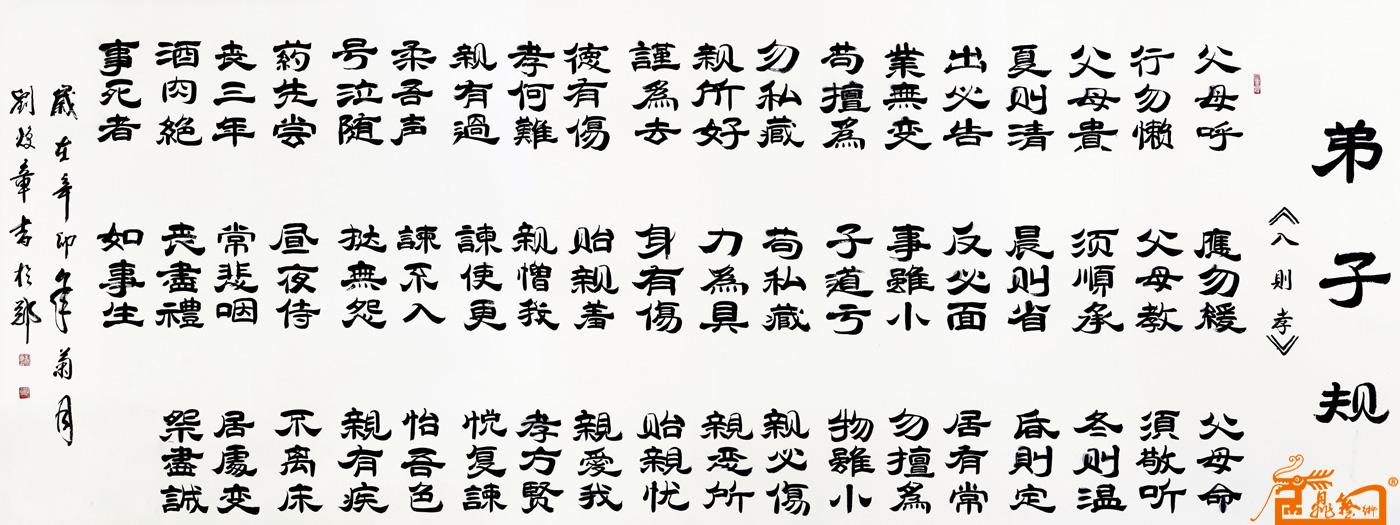 弟子规
《八則孝》
父母呼 應勿緩 父母命
行勿懒 父母教 須敬听
父母責 须順承 冬则温
夏则清 晨则省 昏則定
出必告 反必面 居有常
業無变 事雖小 勿擅為
苟擅為 子道亏 物雖小
勿私藏 苟私藏 親必傷
親所好 力為具 親恶所
謹為去 身有傷 贻親忧
德有傷 贻親羞 親愛我
孝何難 親憎我 孝方賢
親有過 諫使更 悦复諫
柔吾声 諫不入 怡吾色
号泣随 挞無怨 親有疾
药先尝 昼夜侍 不离床
丧三年 常悲咽 居處变
酒肉絶 丧盡禮 祭盡誠
事死者 如事生
歲在辛卯年菊月
劉章書於鄭